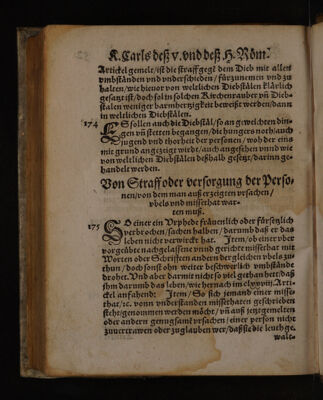 K. Carls deß v. vnd deß H. Röm.
Artickel gemelt / ist die straff gegē dem Dieb mit allen
vmbständen vnd vnderschieden / fürzunemen vnd zu
halten / wie hienor von weltlichen Diebstälen klärlich
gesatzt ist / doch soll in solchen Kirchenrauber vn̄ Dieb-
stalen weniger barmhertzigkeit beweißt werden / dann
in weltlichen Diebstälen.
174 ES sollen auch die Diebstäl / so an geweichten din-
gen vn̄ stetten begangen / die hungers noth / auch
jugend vnd thorheit der personen / wo der eins
mit grund angezeigt wird / auch angesehen vnnd wie
von weltlichen Diebstälen deßhalb gesetzt / darinn ge-
handelt werden.
Von Straff oder versorgung der Perso-
nen / von dem man auß erzeigten vrsachen /
vbels vnd missethat war-
ten muß.
175 SO einer ein Vrphede fräuenlich oder fürsetzlich
verbrochen / sachen halben / darumb daß er das
leben nicht verwirckt hat. Item / ob einer vber
vorgeübte nachgelassene vnnd gerichte missethat mit
Worten oder Schrifften andern dergleichen vbels zu-
thun / doch sonst ohn weiter beschwerlich vmbstände
drohet. Vnd aber darmit nicht so viel gethan hett / daß
ihm darumb das leben / wie hernach im clxxviij. Arti-
ckel anfahend: Item / So sich jemand einer misse-
that / ꝛc. vonn vnderstanden missethaten geschrieben
steht / genommen werden möcht / vn̄ auß jetzgemelten
oder andern genugsamē vrsachen / einer person nicht
zuuertrawen oder zuglauben wer / daß sie die leuth ge-
walt-